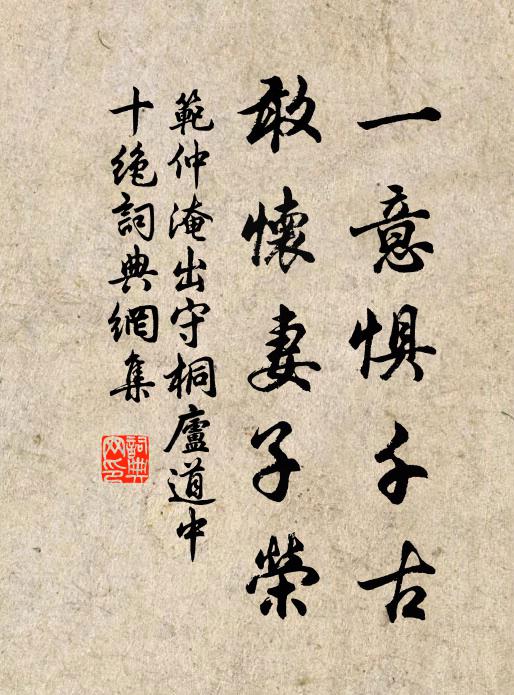 一意懼千古
敢懷妻子榮
範仲淹出守桐廬道中
十絶詞典網集
詞典
网印